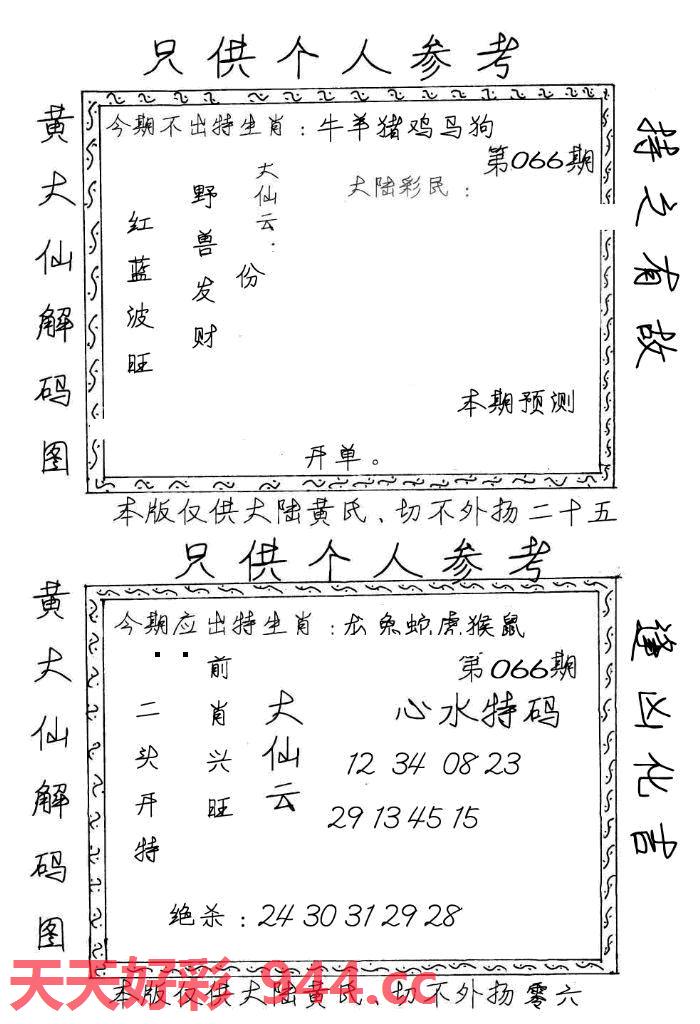 只供个人参考
黄大仙解码图
持之有故
今期不出特生肖：牛羊猪鸡马狗
第066期
大陆彩民：
大仙云：
份
野兽发财
红蓝波旺
本期预测
开单。
本版仅供大陆黄氏、切不外扬二十五
只供个人参考
黄大仙解码图
逢凶化吉
今期应出特生肖：龙兔蛇虎猴鼠
第066期
心水特码
大仙云
前肖兴旺
二头开特
12 34 08 23
29 13 45 15
绝杀：24 30 31 29 28
天天好彩 944.cc
本版仅供大陆黄氏、切不外扬零六